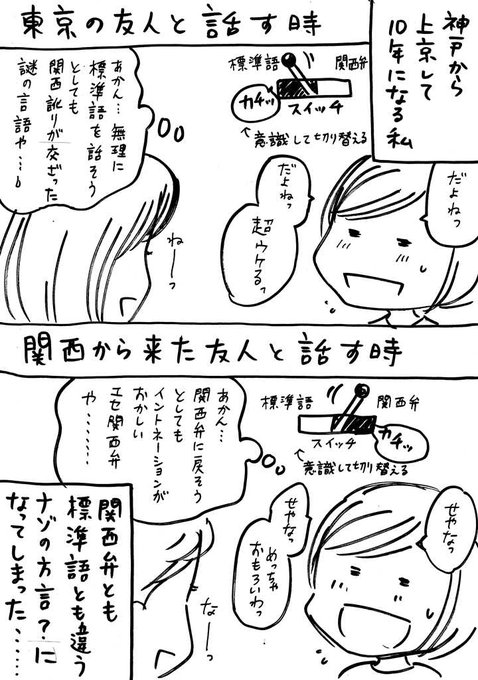 東京の友人と話す時
神戸から
上京して
10年になる私
標準語
関西弁
カチッ
スイッチ
↑意識して切り替える
だよねっ
だよねっ
超ウケるっ
あかん…無理に
標準語を話そう
としても
関西訛りが交ざった
謎の言語や…
ねーっ
関西から来た友人と話す時
標準語
関西弁
カチッ
スイッチ
↑意識して切り替える
せやなっ
せやなっ
めっちゃ
おもろいわっ
あかん…
関西弁に戻そう
としても
イントネーションが
おかしい
エセ関西弁
や……
なーっ
関西弁とも
標準語とも違う
ナゾの方言?に
なってしまった……